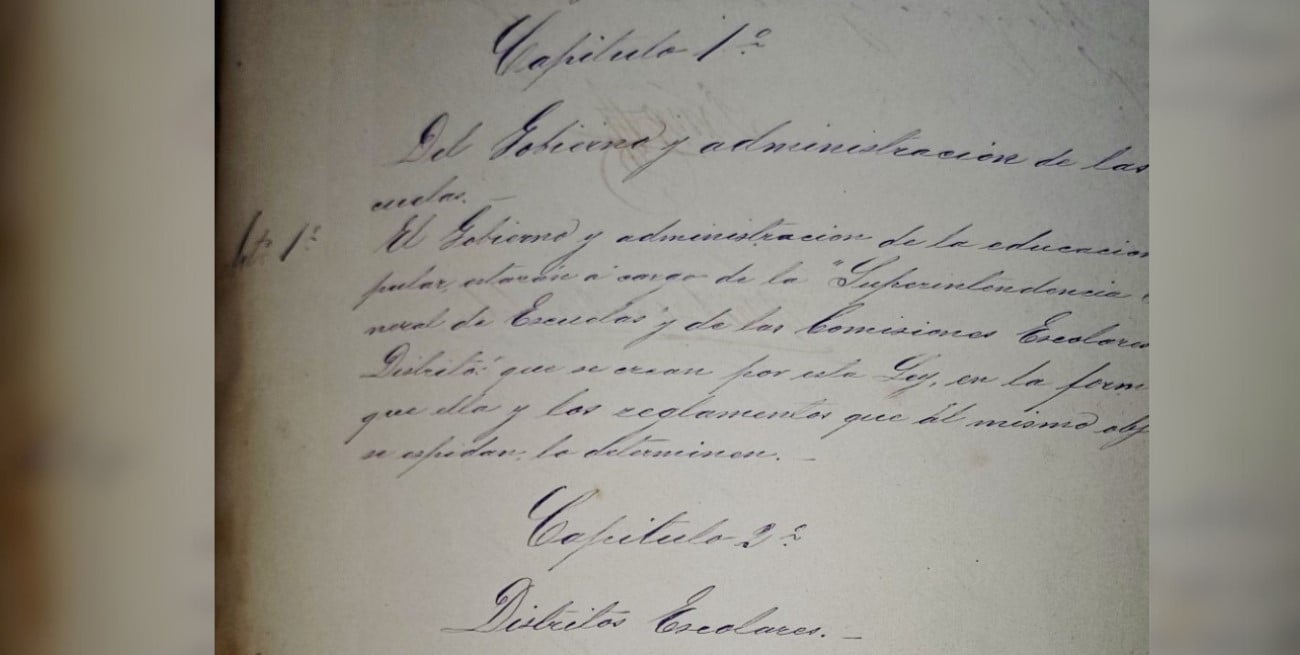 Capitulo 1º
Del Gobierno y administracion de las
cuelas. —
Art. 1º El Gobierno y administracion de la educacion
pular, estarán a cargo de la "Superintendencia
neral de Escuelas y de las Comisiones Escolares
Distrito" que se crean por esta Ley, en la form
que ella y los reglamentos que al mismo obj
se espidan, lo determinen. —
Capitulo 2º
Distritos Escolares. —